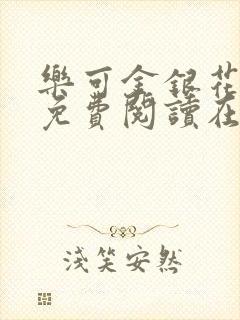 樂可金銀花
免費閱讀在
淺笑安然